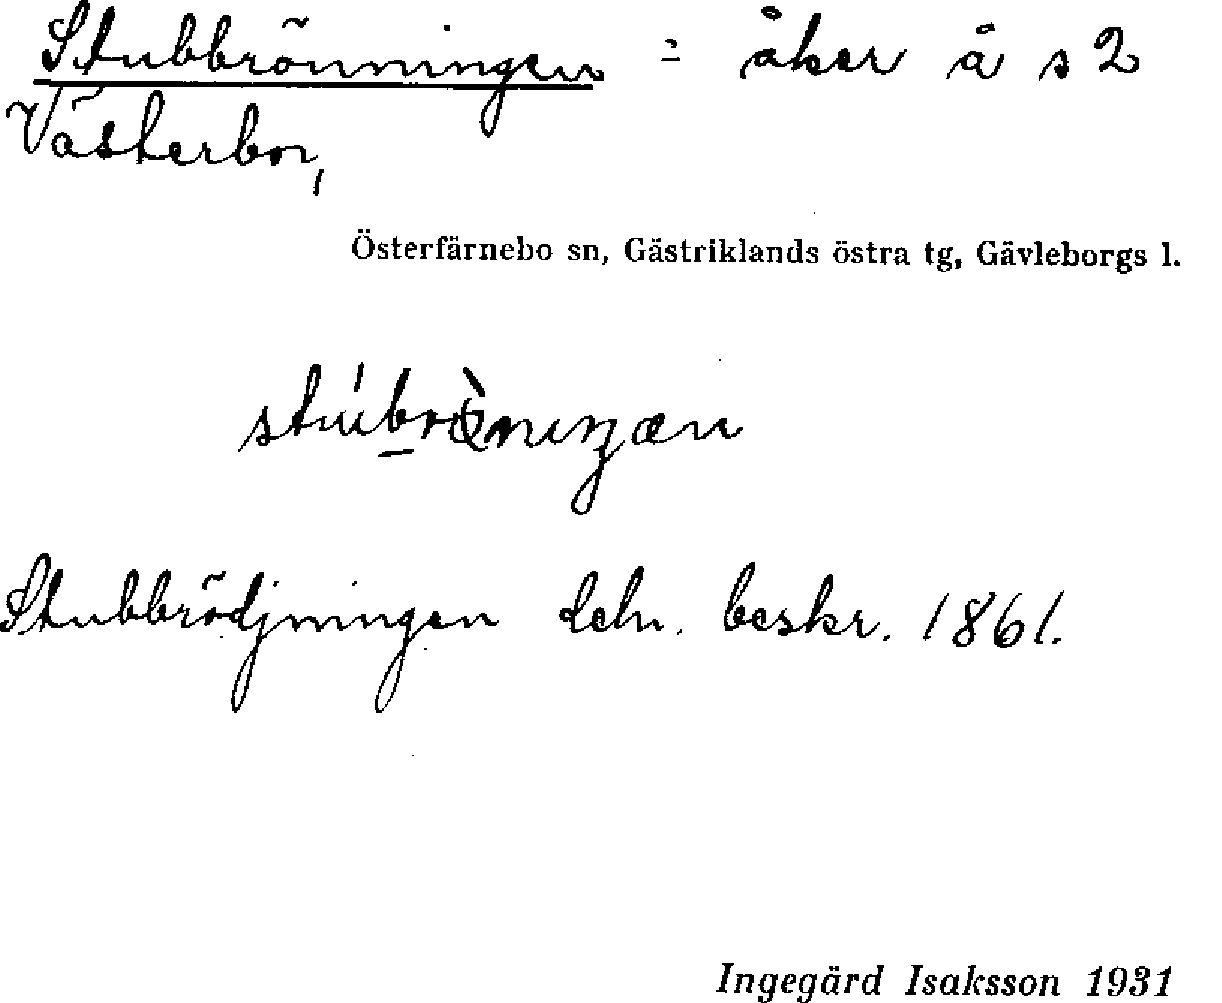 Stubbrönningen = åker å s 2
Västerbor,
Österfärnebo sn, Gästriklands östra tg, Gävleborgs l.
Stubbrödjningen deln. beskr. 1861.
Ingegärd Isaksson 1931